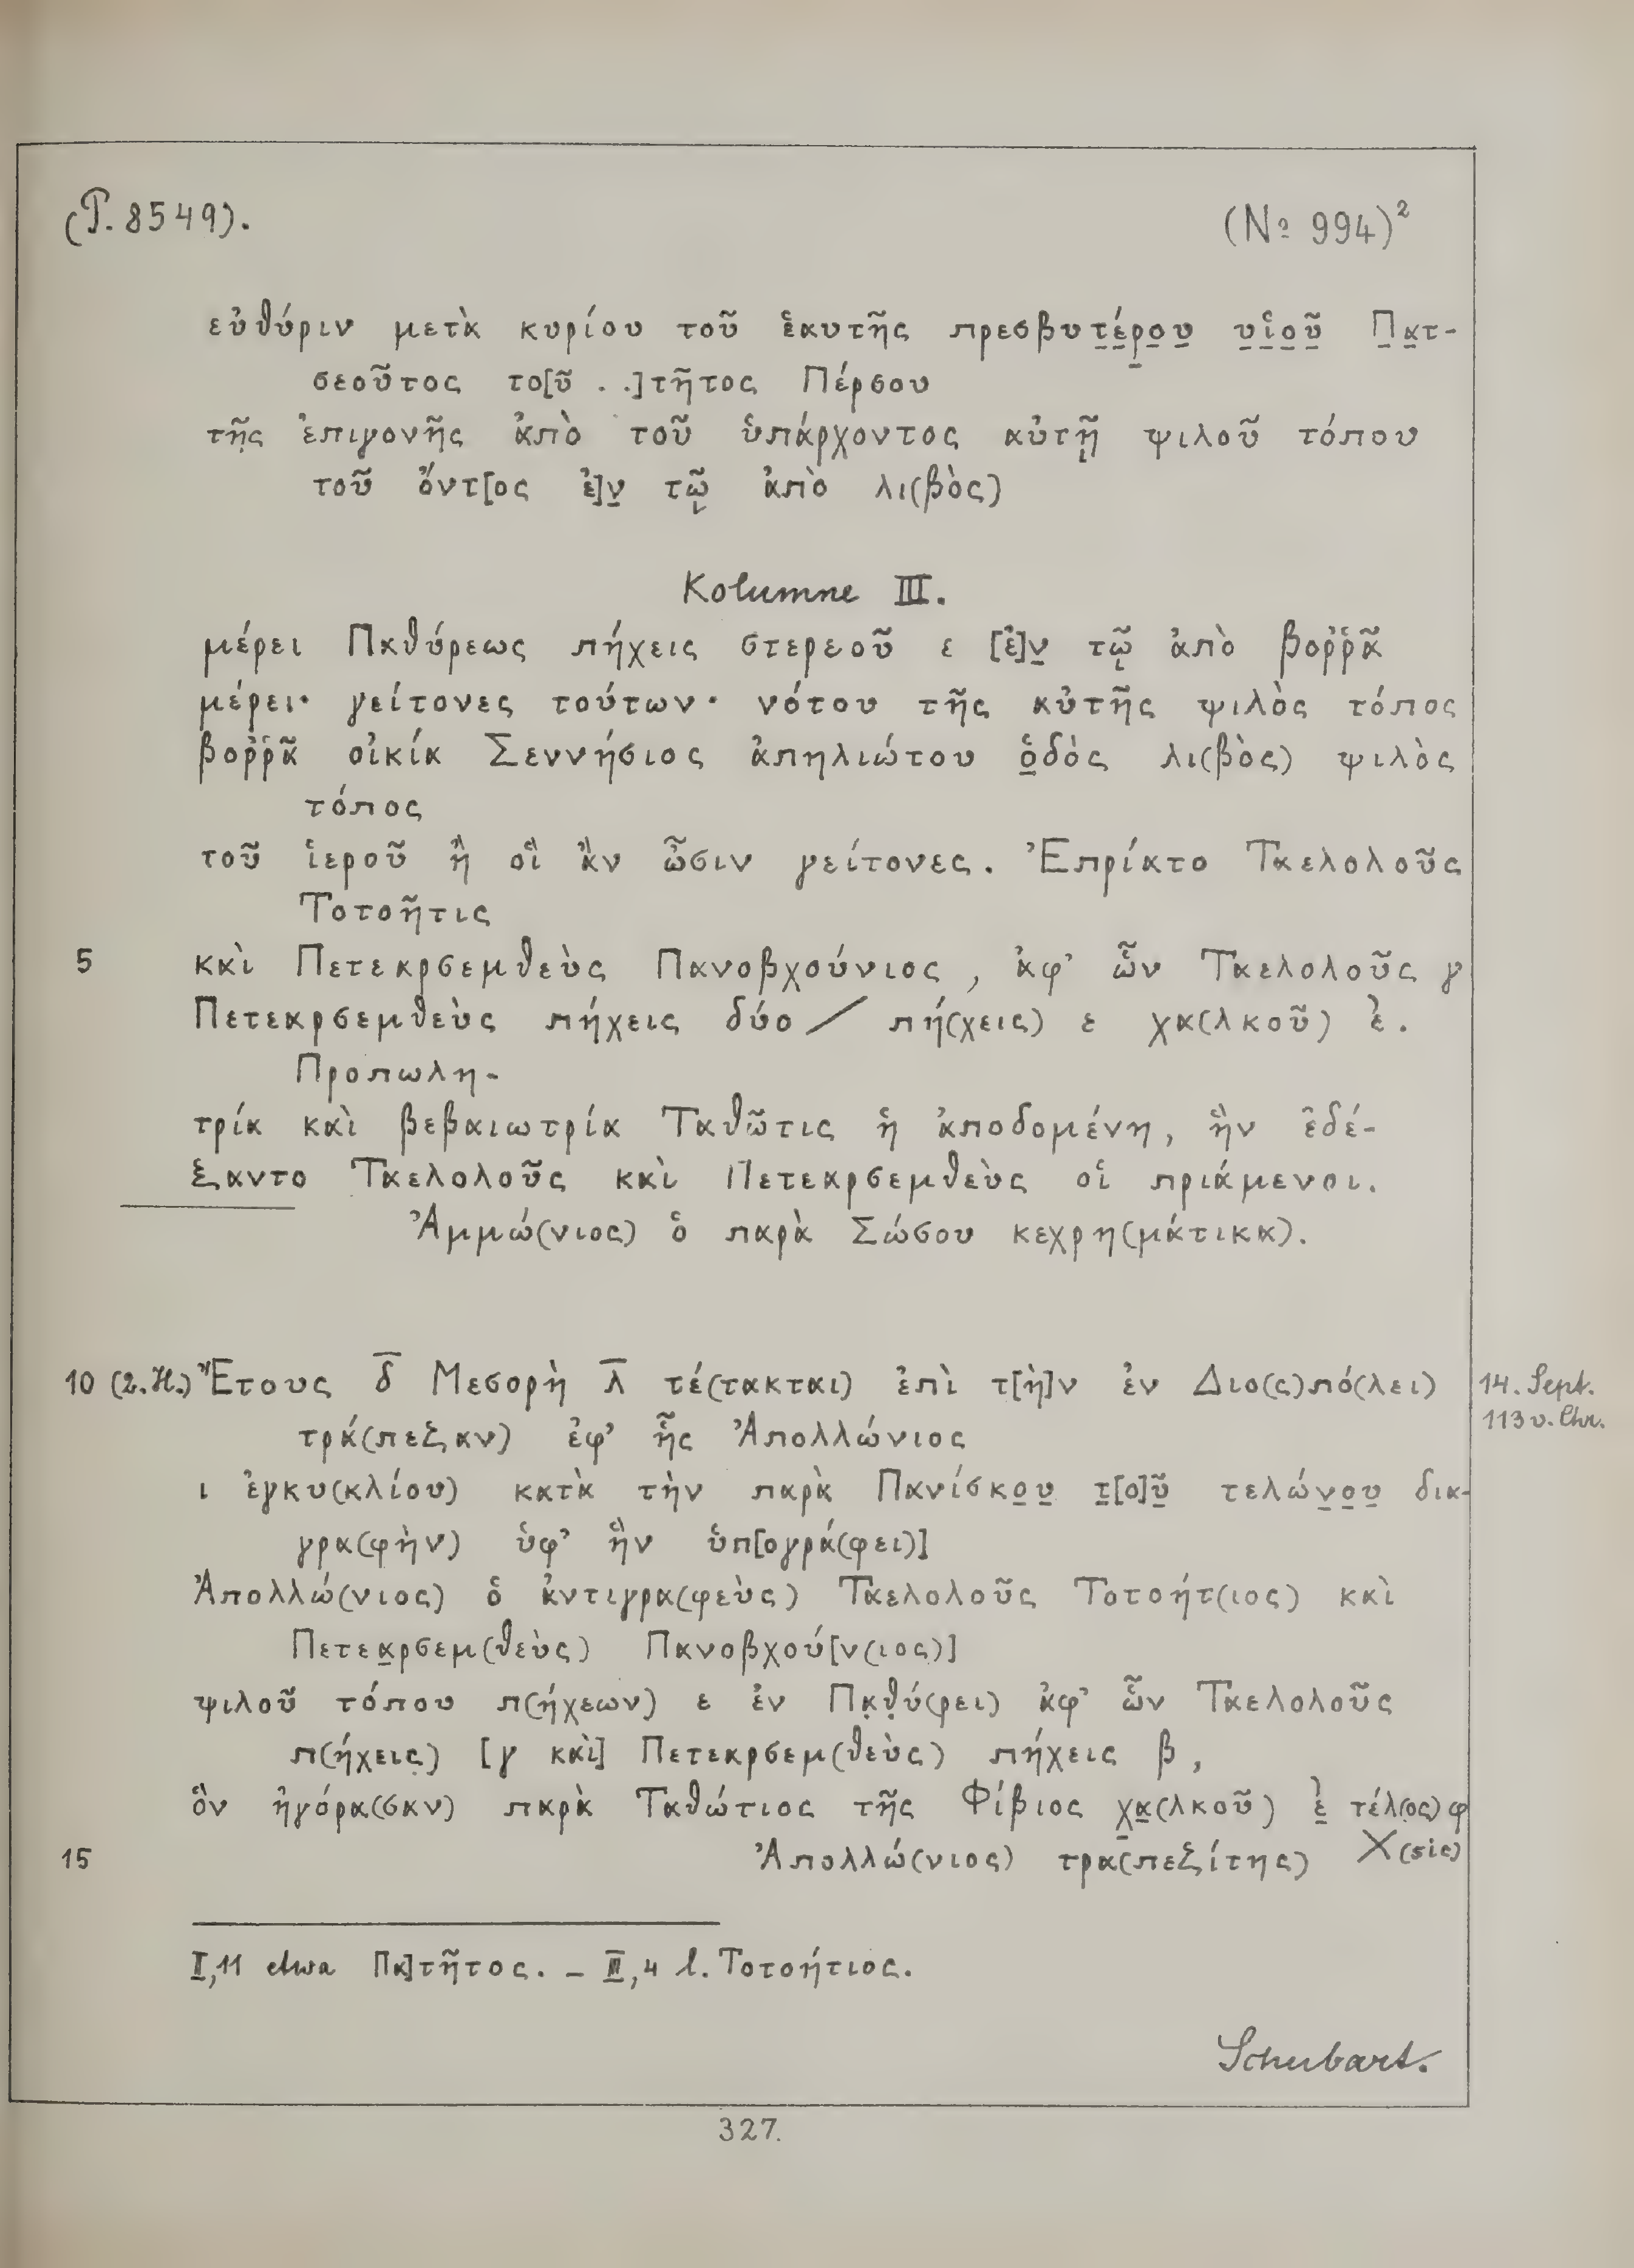 (P. 8549).
(№ 994)²
εὐθύριν μετὰ κυρίου τοῦ ἑαυτῆς πρεσβυτ̣έ̣ρ̣ο̣υ̣ υ̣ἱ̣ο̣ῦ̣ Π̣α̣τ-
σεοῦτος το[ῦ . .]τῆτος Πέρσου
τῆ̣ς ἐπιγονῆς ἀπὸ τοῦ ὑπάρχοντος αὐτῇ ψιλοῦ τόπου
τοῦ ὄντ[ος ἐ]ν̣ τῷ ἀπὸ λι(βὸς)
Kolumne III.
μέρει Παθύρεως πήχεις στερεοῦ ε [ἐ]ν̣ τῷ ἀπὸ βοῤῥᾶ
μέρει· γείτονες τούτων· νότου τῆς αὐτῆς ψιλὸς τόπος
βοῤῥᾶ οἰκία Σεννήσιος ἀπηλιώτου ὁ̣δὸς λι(βὸς) ψιλὸς
τόπος
τοῦ ἱεροῦ ἢ οἳ ἂν ὦσιν γείτονες. Ἐπρίατο Ταελολοῦς
Τοτοῆτις
5 καὶ Πετεαρσεμθεὺς Πανοβχούνιος, ἀφ’ ὧν Ταελολοῦς γ
Πετεαρσεμθεὺς πήχεις δύο ∕ πή(χεις) ε χα(λκοῦ) ἒ.
Προπωλη-
τρία καὶ βεβαιωτρία Ταθῶτις ἡ ἀποδομένη, ἣν ἐδέ-
ξαντο Ταελολοῦς καὶ Πετεαρσεμθεὺς οἱ πριάμενοι.
Ἀμμώ(νιος) ὁ παρὰ Σώσου κεχρη(μάτικα).
10 (2. H.) Ἔτους δ̅ Μεσορὴ λ̅ τέ(τακται) ἐπὶ τ[ὴ]ν ἐν Διο(ς)πό(λει)
14. Sept.
113 v. Chr.
τρά(πεζαν) ἐφ’ ἧς Ἀπολλώνιος
ι ἐγκυ(κλίου) κατὰ τὴν παρὰ Πανίσκο̣υ̣ τ̣[ο]ῦ̣ τελών̣ο̣υ̣ δια-
γρα(φὴν) ὑφ’ ἣν ὑπ[ογρά(φει)]
Ἀπολλώ(νιος) ὁ ἀντιγρα(φεὺς) Ταελολοῦς Τοτοήτ(ιος) καὶ
Πετεα̣ρσεμ(θεὺς) Πανοβχού[ν(ιος)]
ψιλοῦ τόπου π(ήχεων) ε ἐν Πα̣θ̣ύ(ρει) ἀφ’ ὧν Ταελολοῦς
π(ήχεις) [γ καὶ] Πετεαρσεμ(θεὺς) πήχεις β,
ὃν ἠγόρα(σαν) παρὰ Ταθώτιος τῆς Φίβιος χ̣α̣(λκοῦ) ἒ̣ τέλ(ος) φ
15 Ἀπολλώ(νιος) τρα(πεζίτης) Χ (sic)
II, 11 etwa Πα]τῆτος. – III, 4 l. Τοτοήτιος.
Schubart.
327.